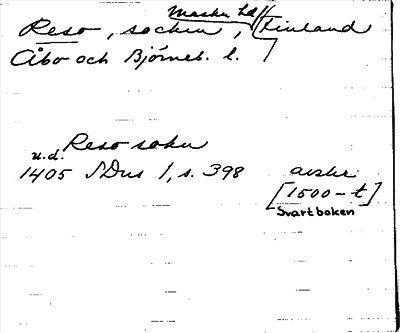 Masku hd
Reso, socken, Finland
Åbo och Björneb. l.
Reso sokn
u.d.
1405 SDns 1, s. 398 avskr.
[1500-t]
Svartboken